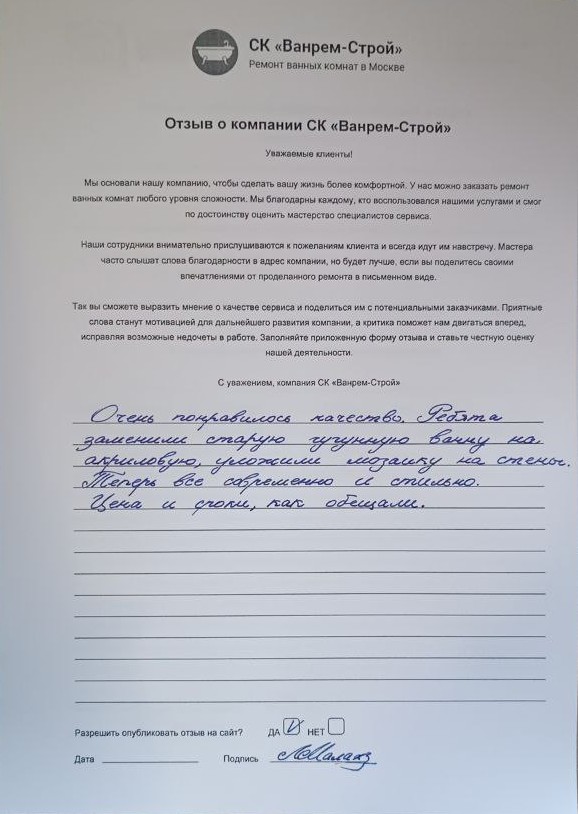 СК «Ванрем-Строй»
Ремонт ванных комнат в Москве
Отзыв о компании СК «Ванрем-Строй»
Уважаемые клиенты!
Мы основали нашу компанию, чтобы сделать вашу жизнь более комфортной. У нас можно заказать ремонт
ванных комнат любого уровня сложности. Мы благодарны каждому, кто воспользовался нашими услугами и смог
по достоинству оценить мастерство специалистов сервиса.
Наши сотрудники внимательно прислушиваются к пожеланиям клиента и всегда идут им навстречу. Мастера
часто слышат слова благодарности в адрес компании, но будет лучше, если вы поделитесь своими
впечатлениями от проделанного ремонта в письменном виде.
Так вы сможете выразить мнение о качестве сервиса и поделиться им с потенциальными заказчиками. Приятные
слова станут мотивацией для дальнейшего развития компании, а критика поможет нам двигаться вперед,
исправляя возможные недочеты в работе. Заполняйте приложенную форму отзыва и ставьте честную оценку
нашей деятельности.
С уважением, компания СК «Ванрем-Строй»
Очень понравилось качество. Ребята
заменили старую чугунную ванну на
акриловую, уложили мозаику на стены.
Теперь все современно и стильно.
Цена и сроки, как обещали.
Разрешить опубликовать отзыв на сайт? ДА НЕТ
Дата Подпись